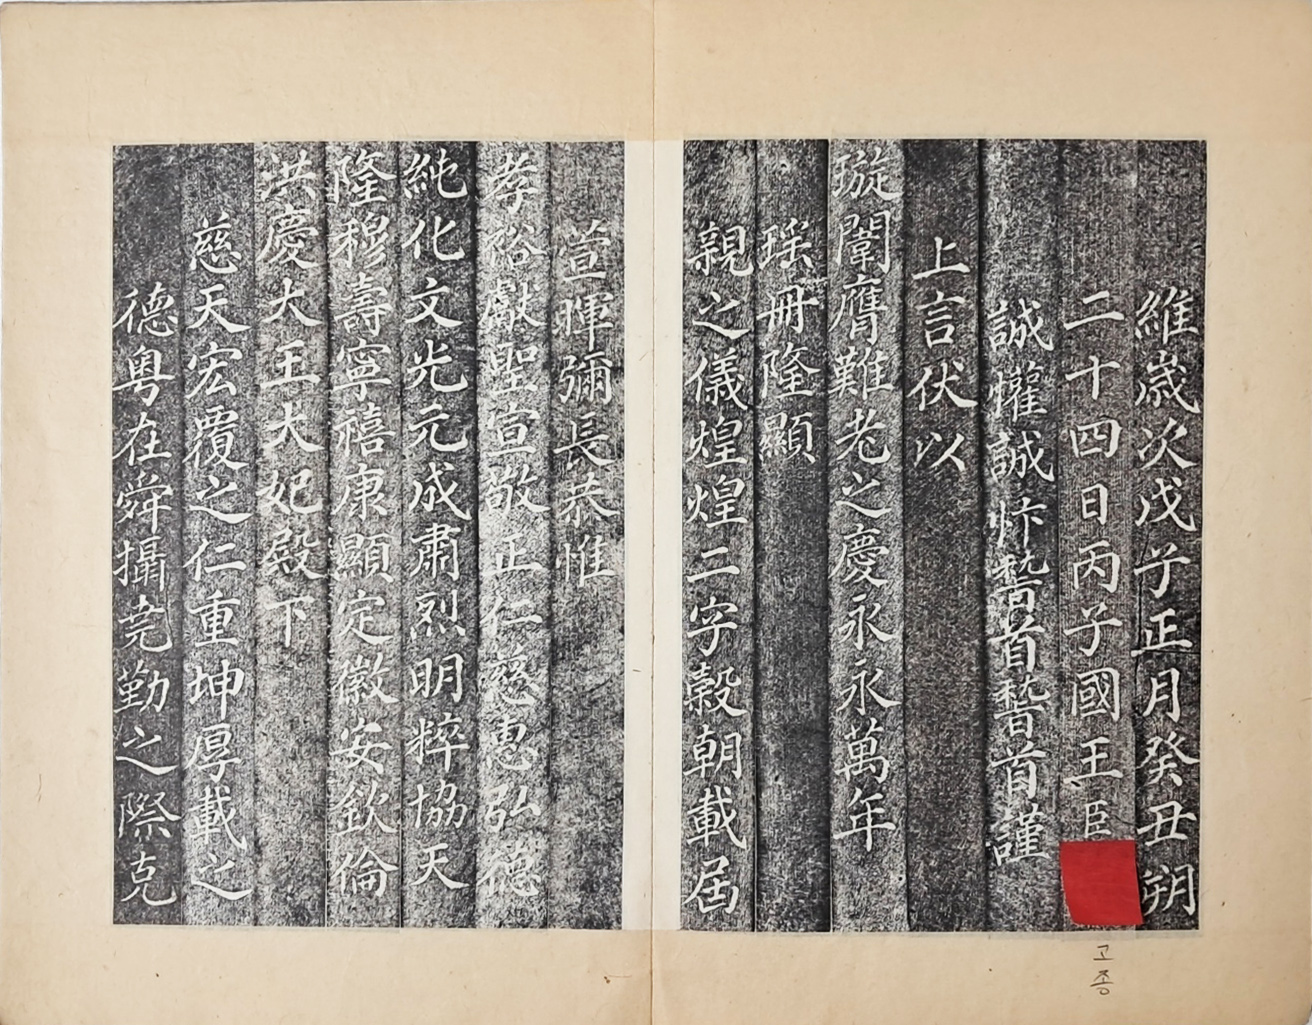 維歲次戊子正月癸丑朔
二十四日丙子國王臣
誠懽誠忭稽首稽首謹
上言伏以
璇闈膺難老之慶永永萬年
瑤冊隆顯
親之儀煌煌二字穀朝載屆
萱暉彌長恭惟
孝裕獻聖宣敬正仁慈惠弘德
純化文光元成肅烈明粹協天
隆穆壽寧禧康顯定徽安欽倫
洪慶大王大妃殿下
慈天宏覆之仁重坤厚載之
德粵在舜攝堯勤之際克
고종